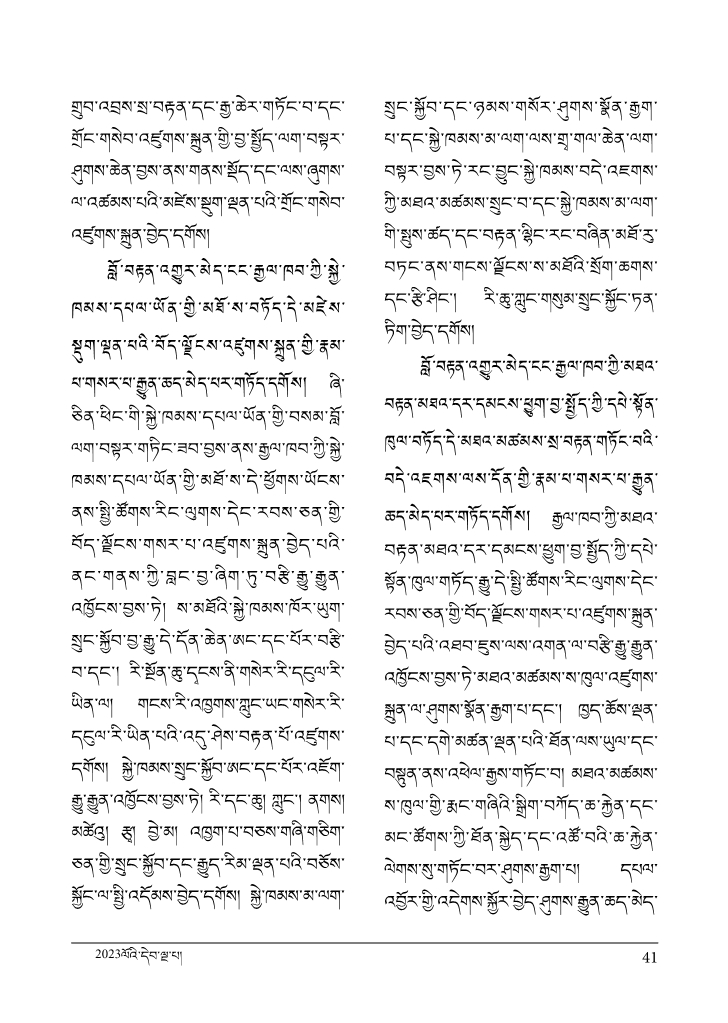 གྲུབ་འབྲས་སྲ་བརྟན་དང་རྒྱ་ཆེར་གཏོང་བ་དང་
གྲོང་གསེབ་འཛུགས་སྐྲུན་གྱི་བྱ་སྤྱོད་ལག་བསྟར་
ཤུགས་ཆེན་བྱས་ནས་གནས་སྡོད་དང་ལས་ཞུགས་
ལ་འཚམས་པའི་མཛེས་སྡུག་ལྡན་པའི་གྲོང་གསེབ་
འཛུགས་སྐྲུན་བྱེད་དགོས།
བློ་བརྟན་འགྱུར་མེད་ངང་རྒྱལ་ཁབ་ཀྱི་སྐྱེ་
ཁམས་དཔལ་ཡོན་གྱི་མཐོ་ས་བཏོད་དེ་མཛེས་
སྡུག་ལྡན་པའི་བོད་ལྗོངས་འཛུགས་སྐྲུན་གྱི་རྣམ་
པ་གསར་པ་རྒྱུན་ཆད་མེད་པར་གཏོད་དགོས། ཞི་
ཅིན་ཕིང་གི་སྐྱེ་ཁམས་དཔལ་ཡོན་གྱི་བསམ་བློ་
ལག་བསྟར་གཏིང་ཟབ་བྱས་ནས་རྒྱལ་ཁབ་ཀྱི་སྐྱེ་
ཁམས་དཔལ་ཡོན་གྱི་མཐོ་ས་དེ་ཕྱོགས་ཡོངས་
ནས་སྤྱི་ཚོགས་རིང་ལུགས་དེང་རབས་ཅན་གྱི་
བོད་ལྗོངས་གསར་པ་འཛུགས་སྐྲུན་བྱེད་པའི་
ནང་གནས་ཀྱི་བླང་བྱ་ཞིག་ཏུ་བརྩི་རྒྱུ་རྒྱུན་
འཁྱོངས་བྱས་ཏེ། ས་མཐོའི་སྐྱེ་ཁམས་ཁོར་ཡུག་
སྲུང་སྐྱོབ་བྱ་རྒྱུ་དེ་དོན་ཆེན་ཨང་དང་པོར་བརྩི་
བ་དང་། རི་སྔོན་ཆུ་དྭངས་ནི་གསེར་རི་དངུལ་རི་
ཡིན་ལ། གངས་རི་འཁྱགས་ཀླུང་ཡང་གསེར་རི་
དངུལ་རི་ཡིན་པའི་འདུ་ཤེས་བརྟན་པོ་འཛུགས་
དགོས། སྐྱེ་ཁམས་སྲུང་སྐྱོབ་ཨང་དང་པོར་འཇོག་
རྒྱུ་རྒྱུན་འཁྱོངས་བྱས་ཏེ། རི་དང་ཆུ། ཀླུང་། ནགས།
མཚེའུ། རྩྭ། བྱེ་མ། འཁྱག་པ་བཅས་གཞི་གཅིག་
ཅན་གྱི་སྲུང་སྐྱོབ་དང་རྒྱུད་རིམ་ལྡན་པའི་བཅོས་
སྐྱོང་ལ་སྤྱི་འདོམས་བྱེད་དགོས། སྐྱེ་ཁམས་མ་ལག་
སྲུང་སྐྱོབ་དང་ཉམས་གསོར་ཤུགས་སྣོན་རྒྱག་
པ་དང་སྐྱེ་ཁམས་མ་ལག་ལས་གྲྭ་གལ་ཆེན་ལག་
བསྟར་བྱས་ཏེ་རང་བྱུང་སྐྱེ་ཁམས་བདེ་འཇགས་
ཀྱི་མཐའ་མཚམས་སྲུང་བ་དང་སྐྱེ་ཁམས་མ་ལག་
གི་སྤུས་ཚད་དང་བརྟན་ལྷིང་རང་བཞིན་མཐོ་རུ་
བཏང་ནས་གངས་ལྗོངས་ས་མཐོའི་སྲོག་ཆགས་
དང་རྩི་ཤིང་། རི་ཆུ་ཀླུང་གསུམ་སྲུང་སྐྱོང་ཏན་
ཏིག་བྱེད་དགོས།
བློ་བརྟན་འགྱུར་མེད་ངང་རྒྱལ་ཁབ་ཀྱི་མཐའ་
བརྟན་མཐའ་དར་དམངས་ཕྱུག་བྱ་སྤྱོད་ཀྱི་དཔེ་སྟོན་
ཁུལ་བཏོད་དེ་མཐའ་མཚམས་སྲ་བརྟན་གཏོང་བའི་
བདེ་འཇགས་ལས་དོན་གྱི་རྣམ་པ་གསར་པ་རྒྱུན་
ཆད་མེད་པར་གཏོད་དགོས། རྒྱལ་ཁབ་ཀྱི་མཐའ་
བརྟན་མཐའ་དར་དམངས་ཕྱུག་བྱ་སྤྱོད་ཀྱི་དཔེ་
སྟོན་ཁུལ་གཏོད་རྒྱུ་དེ་སྤྱི་ཚོགས་རིང་ལུགས་དེང་
རབས་ཅན་གྱི་བོད་ལྗོངས་གསར་པ་འཛུགས་སྐྲུན་
བྱེད་པའི་འཐབ་ཇུས་ལས་འགན་ལ་བརྩི་རྒྱུ་རྒྱུན་
འཁྱོངས་བྱས་ཏེ་མཐའ་མཚམས་ས་ཁུལ་འཛུགས་
སྐྲུན་ལ་ཤུགས་སྣོན་རྒྱག་པ་དང་། ཁྱད་ཆོས་ལྡན་
པ་དང་དགེ་མཚན་ལྡན་པའི་ཐོན་ལས་ཡུལ་དང་
བསྟུན་ནས་འཕེལ་རྒྱས་གཏོང་བ། མཐའ་མཚམས་
ས་ཁུལ་གྱི་རྨང་གཞིའི་སྒྲིག་བཀོད་ཆ་རྐྱེན་དང་
མང་ཚོགས་ཀྱི་ཐོན་སྐྱེད་དང་འཚོ་བའི་ཆ་རྐྱེན་
ལེགས་སུ་གཏོང་བར་ཤུགས་རྒྱག་པ། དཔལ་
འབྱོར་གྱི་འདེགས་སྐྱོར་བྱེད་ཤུགས་རྒྱུན་ཆད་མེད་
2023ལོའི་དེབ་ལྔ་པ།
41